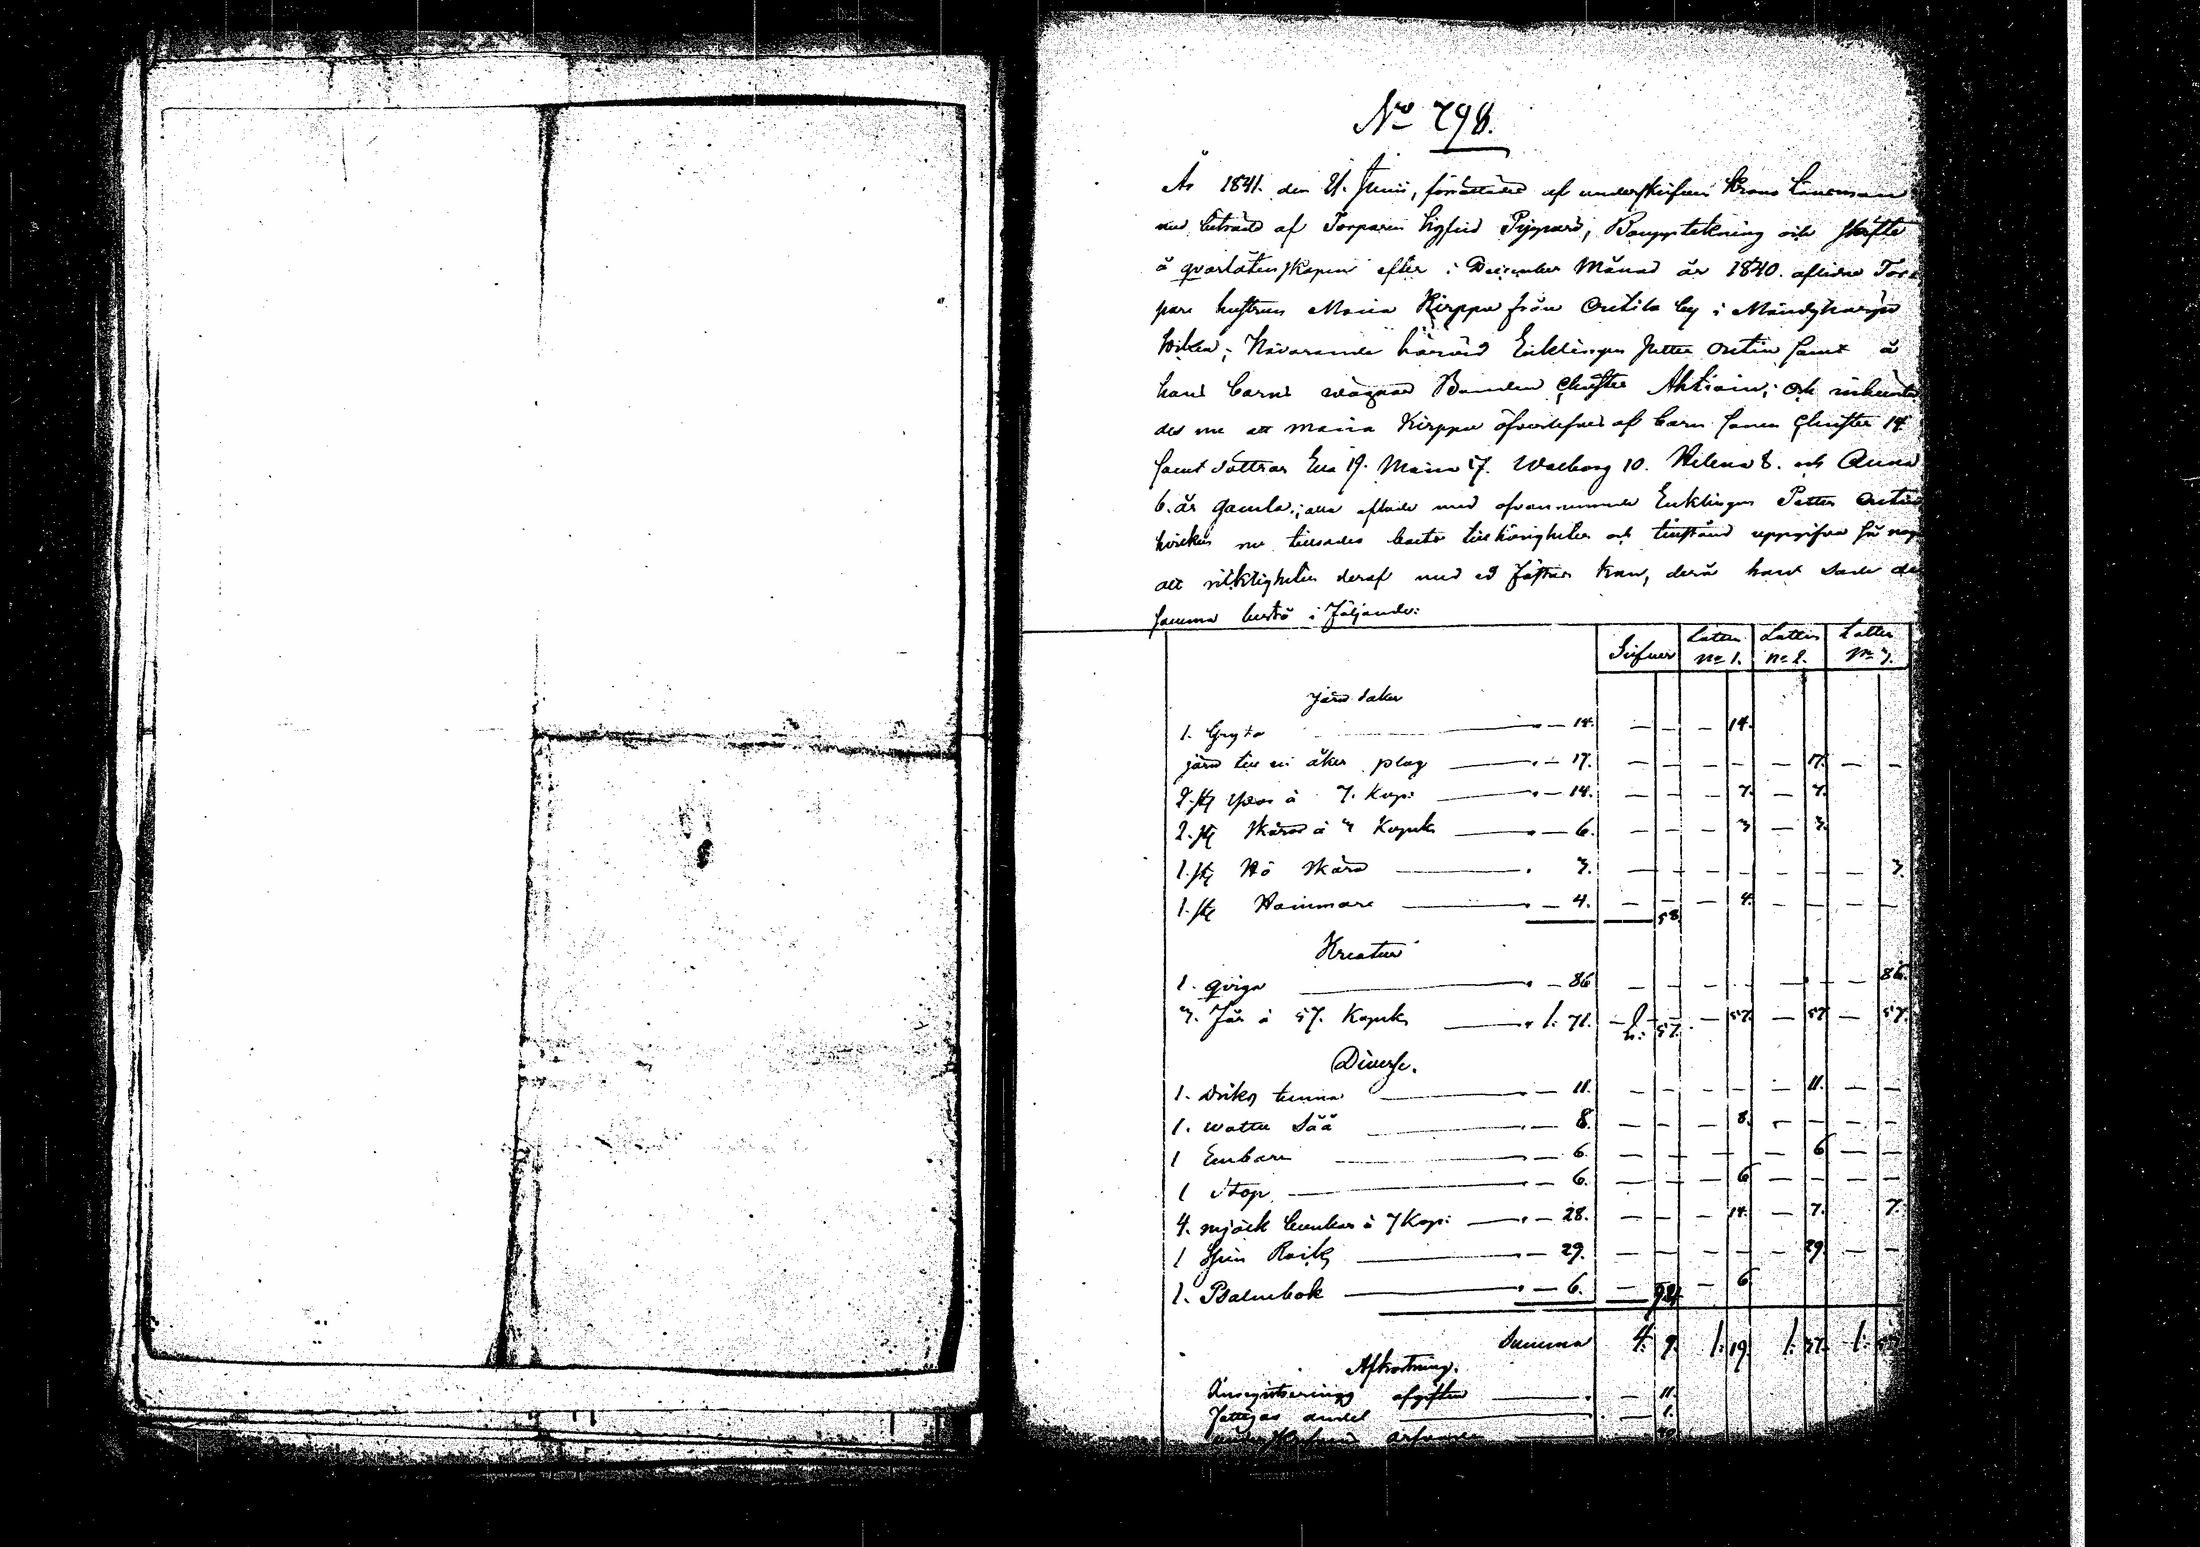 No 798.
År 1841. den 21. Junii, förrättades af underskrifven Krono Länsman
med biträde af Torparen Sigfrid Pijpare, Bouppteckning och skifte
å qvarlåtenskapen efter i December Månad år 1840. aflidne Tor-
pare hustrun Maria Kirppu från Ontila by i Mändyharju
Socken; Närvarande härvid Enklingen Petter Ontin samt å
hans barns vägnar Bonden Christer Ahtiain; och
des nu att Maria Kirppu öfverlefves af barn sonen Christer 14
samt döttrar Eva 19. Maria 17. Walborg 10. Helena 8. och Anna
6. år gamla; alla aflade med ofvannämnde Enklingen Petter Ontin
hvilken nu tillsades boets tillhörigheter och tillstånd uppgifva så noga
att riktigheten deraf med ed fästas kan, derå han sade den
samma bestå i följande:
Silfver Lotten No 1. Lotten No 2. Lotten No 3.
Järn saker
1. Gryta — 14. — — — 14.
järn till en åker plog — 17. — — — — — 17. — —
2. st yxor à 7. Kop: — 14. — — — 7. — 7.
2. st skäror à 3 Kopek — 6. — — — 3 — 3.
1. st Hö skära 3. — — — — — — — 3.
1. st Hammare — 4. — — — 4. — — — —
58
Kreatur
1. qviga — 86 — — — — — — — 86.
3. Får à 57. Kopek 1. 71. 2: 57. — 57. — 57 — 57.
Diverse.
1. Dricks tunna — 11. — — — — — 11. — —
1. watten Såå — 8. — — — 8. — — — —
1 Embare — 6. — — — — — 6 — —
1 stop — 6. — — — 6 — — — —
4. mjölk bunkar à 7 Kop: — 28. — — — 14. — 7. 7.
1 Spin Råck — 29. — — — — — 29. — —
1. Psalmbok — 6. — 94. — 6
Summa 4. 9. 1. 19. 1. 37. 1.
Afkortning.
afgiften — 11.
Fattigas andel — 1.